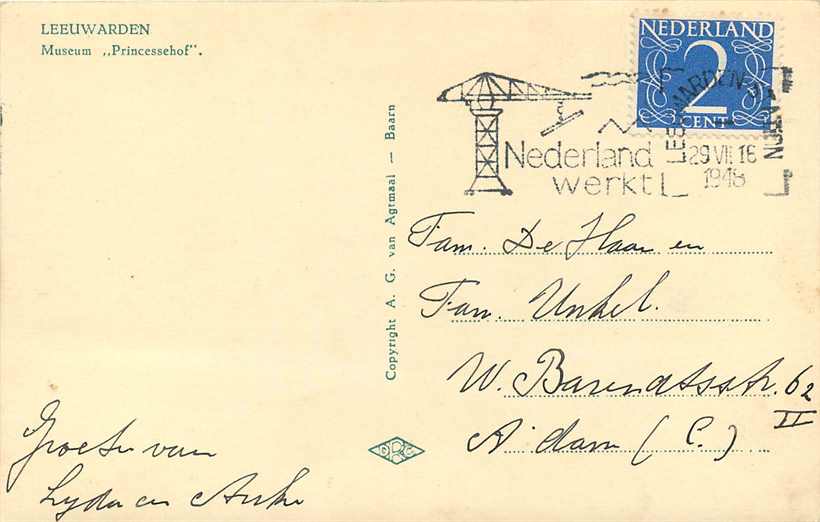 LEEUWARDEN
Museum „Princessehof".
NEDERLAND
2
CENT
LEEUWARDEN
29 VII 16
1948
Nederland
werkt
Copyright A. G. van Agtmaal — Baarn
Fam. De Haan en
Fam. Unkel.
W. Barendtsstr. 62
II
A'dam (C.)
Groeten van
Lyda en Anke